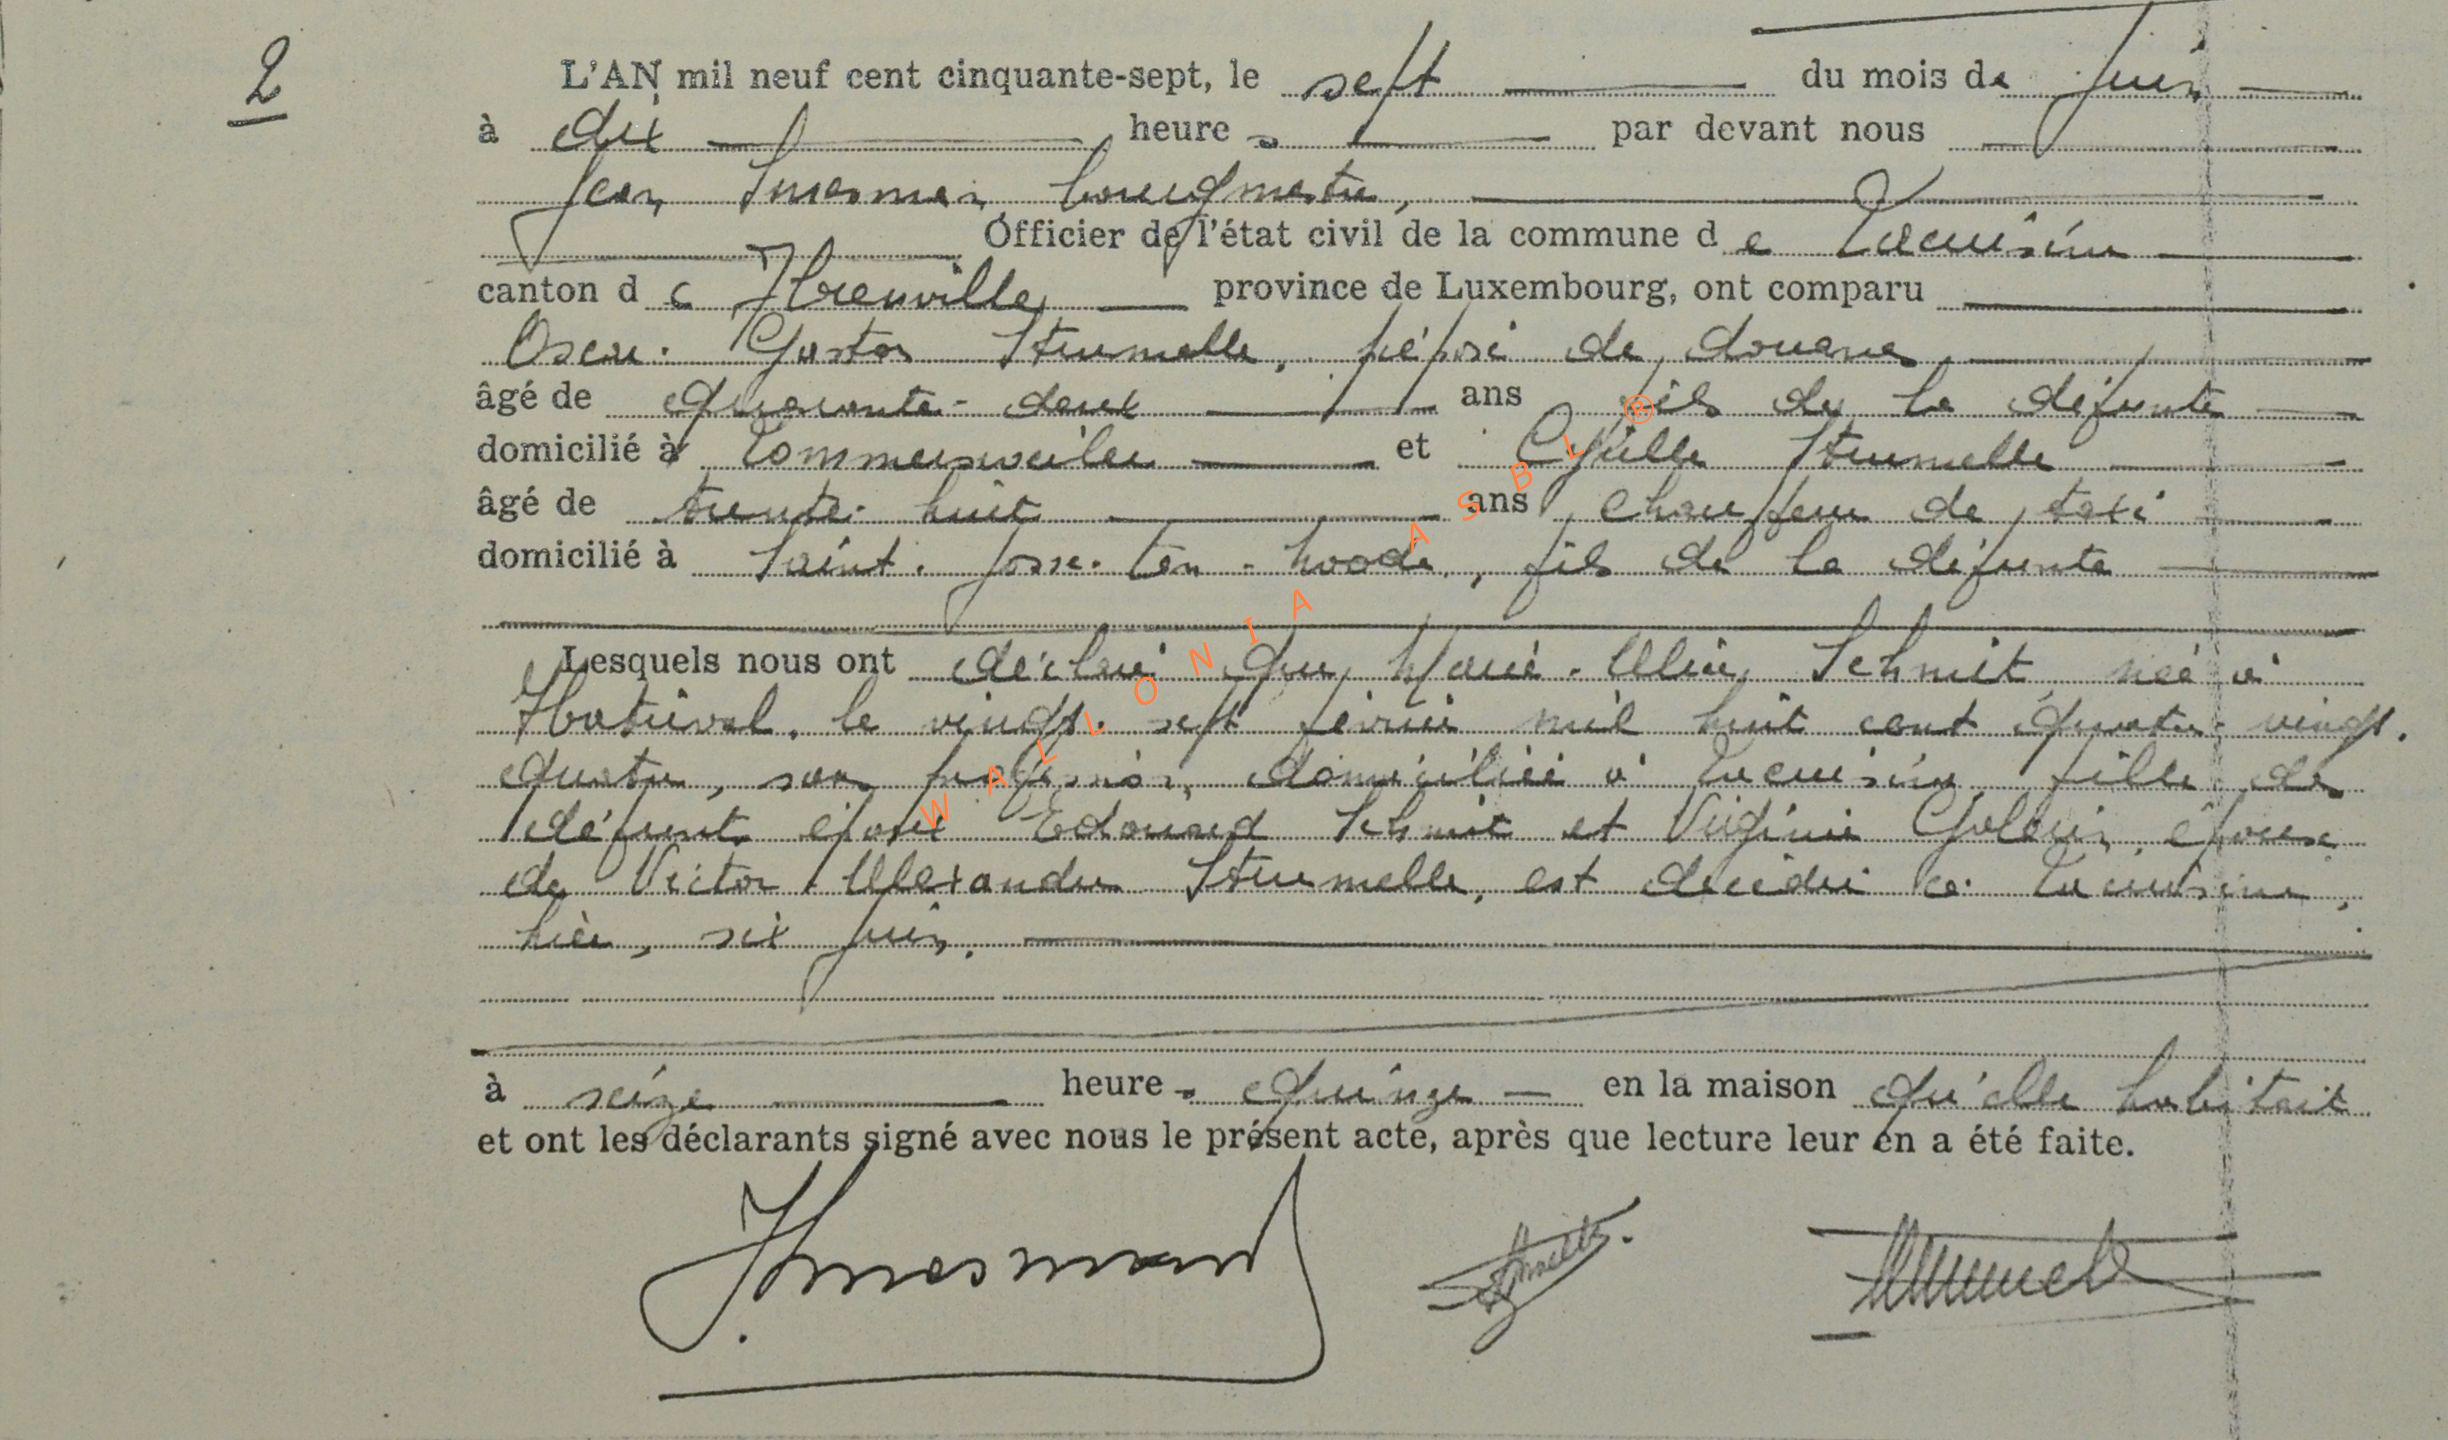 2
L'AN mil neuf cent cinquante-sept, le sept du mois de juin
à dix heures par devant nous
Jean bourgmestre,
Officier de l'état civil de la commune de Lacuisine
canton de province de Luxembourg, ont comparu
Oscar Gaston Strumelle, préposé de douane
âgé de quarante-deux ans fils de la défunte
domicilié à Tommersweiler et Cyrille Strumelle
âgé de trente-huit ans, chauffeur de taxi
domicilié à Saint-Josse-ten-noode, fils de la défunte
Lesquels nous ont déclaré que Marie-Aline Schmit, née à
Hatrival, le vingt-sept février mil huit cent quatre-vingt-
quatre, sans profession, domiciliée à Lacuisine, fille de
défunts époux Edouard Schmit et Virginie épouse
de Victor Alexandre Strumelle, est décédée à Lacuisine,
hier, six juin.
à seize heures quinze en la maison qu'elle habitait
et ont les déclarants signé avec nous le présent acte, après que lecture leur en a été faite.
WALLONIA ASBL ®